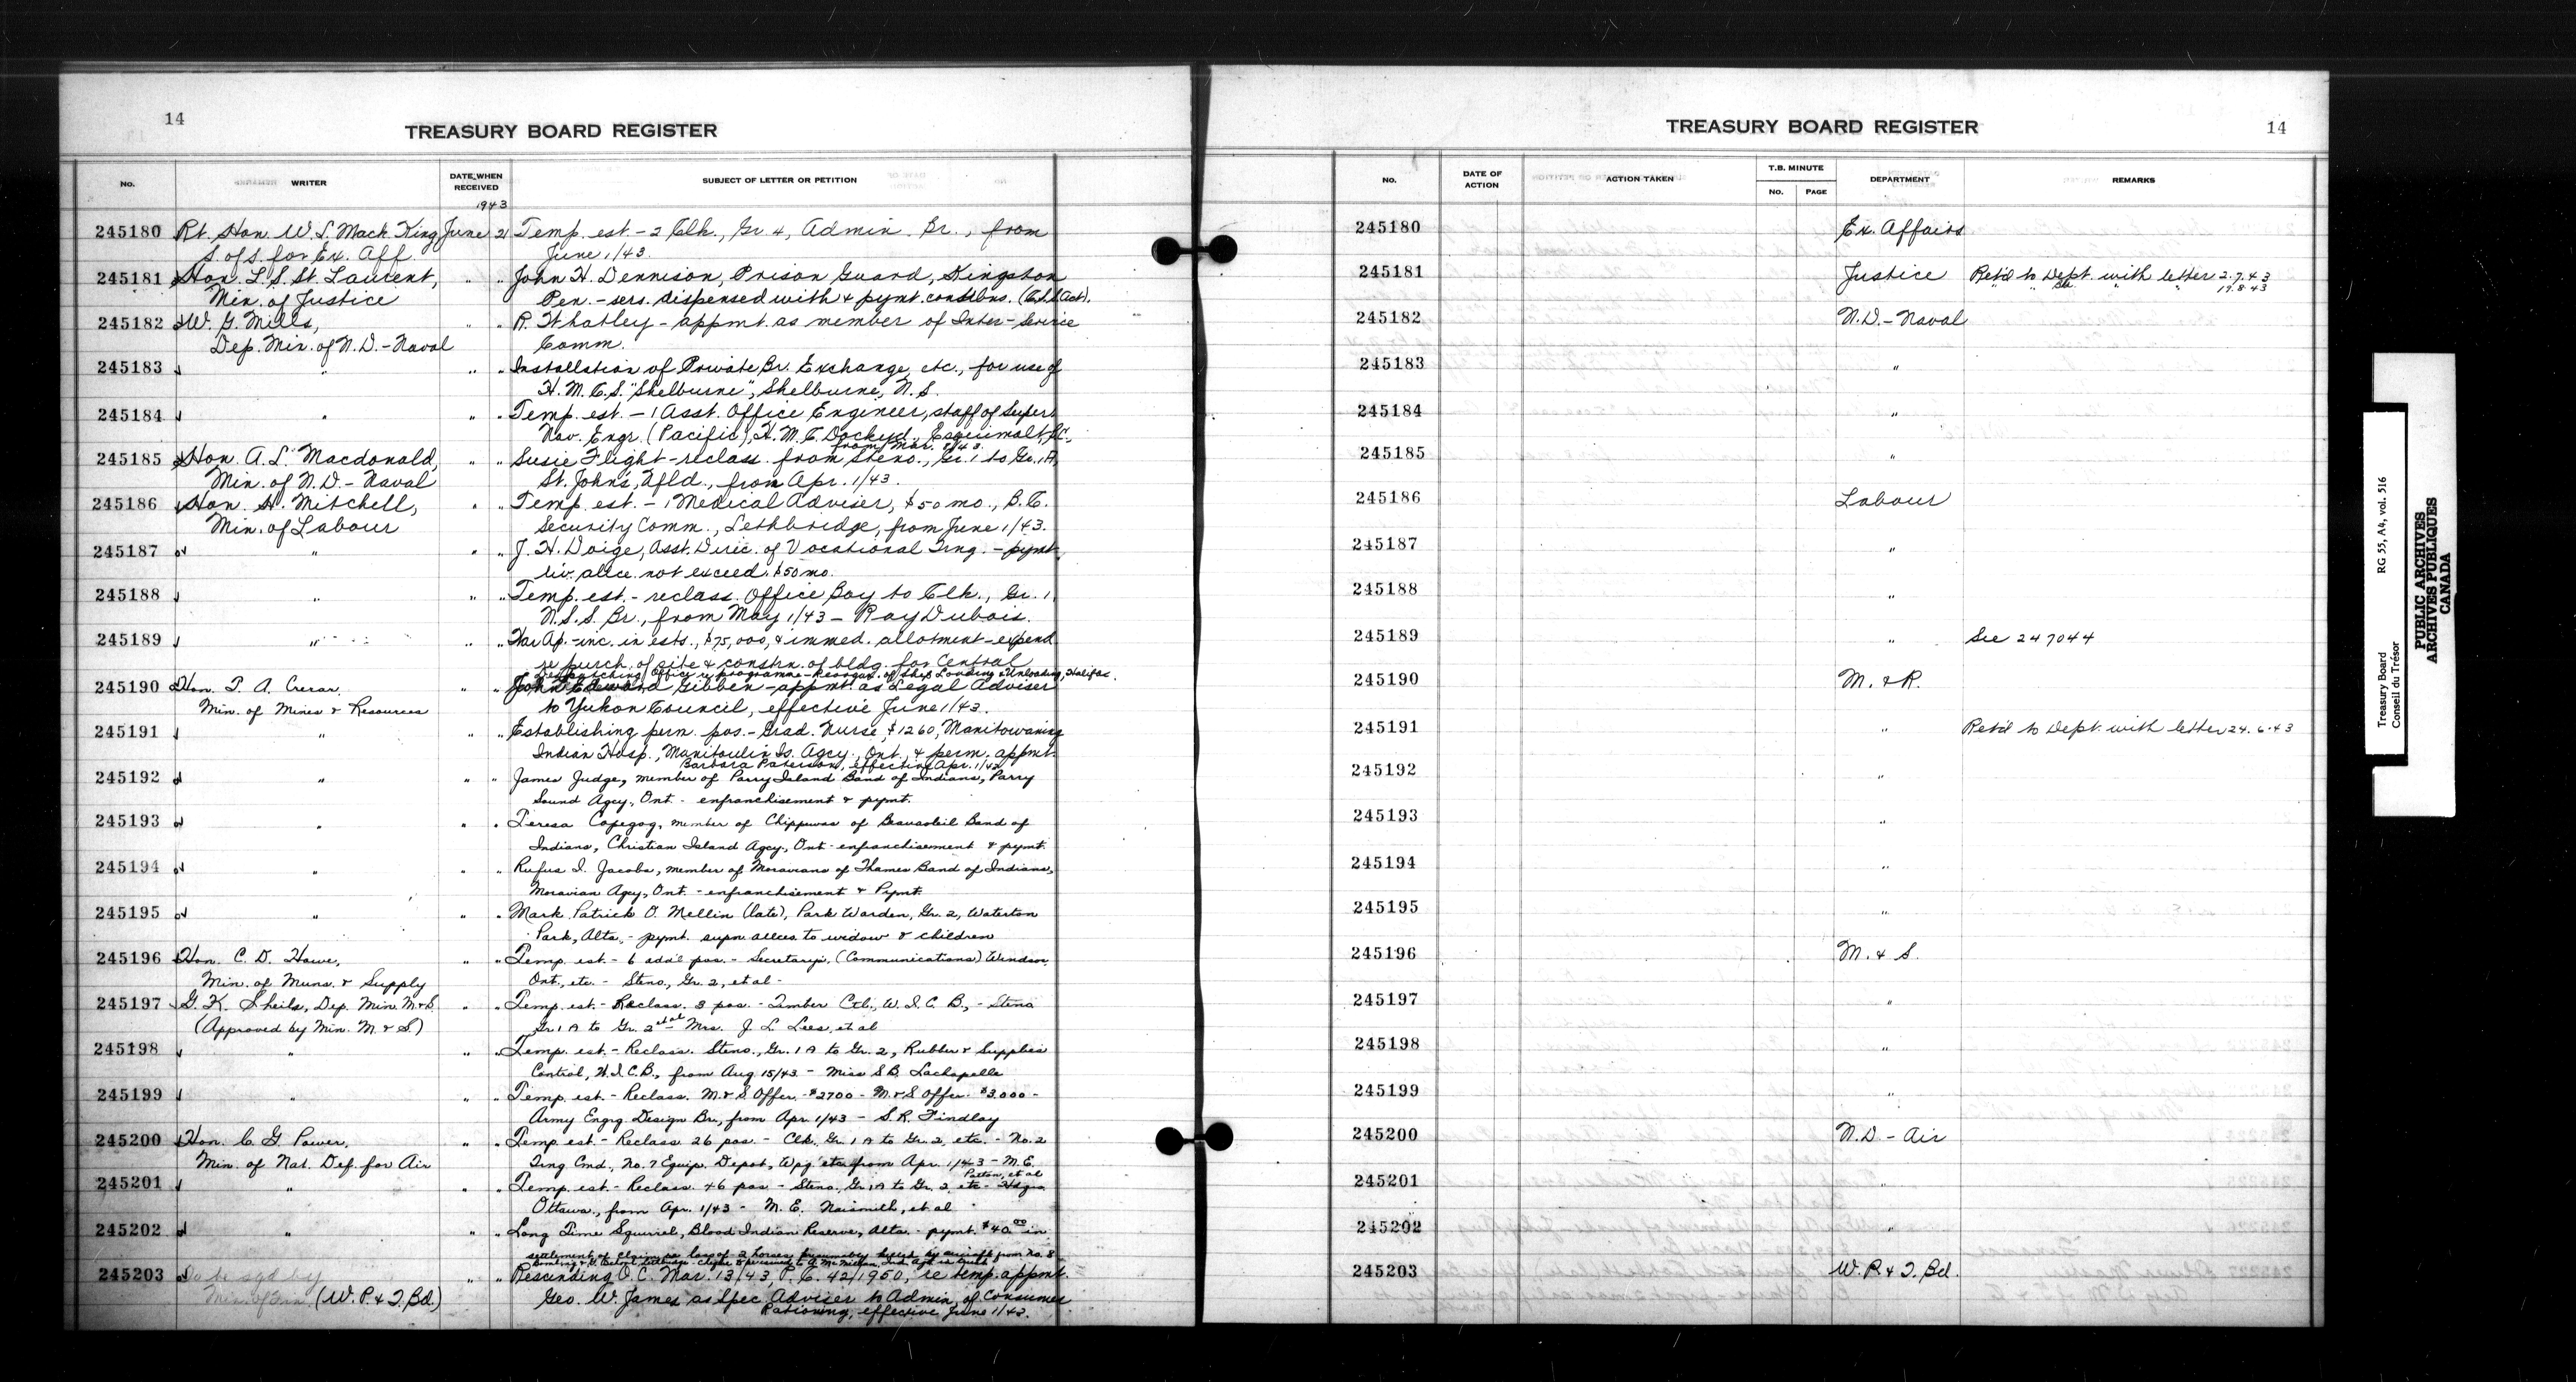 14
TREASURY BOARD REGISTER
NO. WRITER DATE WHEN RECEIVED SUBJECT OF LETTER OR PETITION
1943
245180 Rt. Hon. W. L. Mack. King June 21 Temp. est. - 2 Clk., Gr. 4, Admin. Br., from
S. of S. for Ex. Aff. June 1/43.
245181 Hon. L. S. St. Laurent, " " John H. Dennison, Prison Guard, Kingston
Min. of Justice Pen. - sers. dispensed with & pymt. contbns. (C.S.S. Act).
245182 W. G. Mills, " " R. Whatley - appmt. as member of Inter-Service
Dep. Min. of N.D. - Naval Comm.
245183 " " " Installation of Private Br. Exchange, etc., for use of
H.M.C.S. "Shelburne", Shelburne, N.S.
245184 " " " Temp. est. - 1 Asst. Office Engineer, staff of Super.
Nav. Engr. (Pacific), H.M.C. Dockyd., Esquimalt, B.C.,
from Mar. 8/43.
245185 Hon. A. L. Macdonald, " " Susie Flight - reclass. from Steno., Gr. 1 to Gr. 1A,
Min. of N.D. - Naval St. John's, Nfld., from Apr. 1/43.
245186 Hon. H. Mitchell, " " Temp. est. - 1 Medical Adviser, $50 mo., B.C.
Min. of Labour Security Comm., Lethbridge, from June 1/43.
245187 " " " J. H. Doige, Asst. Direc. of Vocational Trng. - pymt.
liv. alice. not exceed. $50 mo.
245188 " " " Temp. est. - reclass. Office Boy to Clk., Gr. 1,
N.S.S. Br., from May 1/43 - Ray Dubois.
245189 " " " War Ap. - inc. in ests., $75,000, & immed. allotment - expend.
re purch. of site & constrn. of bldg. for Central
Despatching Office re programme - Reorgan. of Ship Loading & Unloading, Halifax.
245190 Hon. T. A. Crerar, " " John Edward Gibben - appmt. as Legal Adviser
Min. of Mines & Resources to Yukon Council, effective June 1/43.
245191 " " " Establishing perm. pos. - Grad. Nurse, $1260, Manitowaning
Indian Hosp., Manitoulin Is. Agcy., Ont., & perm. appmt.
Barbara Paterson, effective Apr. 1/43
245192 " " " James Judge, member of Parry Island Band of Indians, Parry
Sound Agcy., Ont. - enfranchisement & pymt.
245193 " " " Teresa Copegog, member of Chippewas of Beausoleil Band of
Indians, Christian Island Agcy., Ont. - enfranchisement & pymt.
245194 " " " Rufus I. Jacobs, member of Moravians of Thames Band of Indians,
Moravian Agcy., Ont. - enfranchisement & Pymt.
245195 " " " Mark Patrick O. Mellin (late), Park Warden, Gr. 2, Waterton
Park, Alta. - pymt. supn. allces to widow & children
245196 Hon. C. D. Howe, " " Temp. est. - 6 add'l pos. - Secretary's, (Communications) Windsor,
Min. of Muns. & Supply Ont., etc. - Steno., Gr. 2, et al -
245197 G. K. Sheils, Dep. Min. M&S. " " Temp. est. - Reclass. 3 pos. - Timber Ctl., W.I.C.B., - Steno
(Approved by Min. M. & S.) Gr. 1A to Gr. 2 et al - Mrs. J. L. Lees, et al
245198 " " " Temp. est. - Reclass. Steno., Gr. 1A to Gr. 2, Rubber & Supplies
Control, W.I.C.B., from Aug 15/43 - Miss S. B. Lachapelle
245199 " " " Temp. est. - Reclass. M.&S. Offcr. - $2700 - M.&S. Offcr. $3000 -
Army Engrg. Design Br., from Apr. 1/43 - S. R. Findlay
245200 Hon. C. G. Power, " " Temp. est. - Reclass. 26 pos. - Clk., Gr. 1A to Gr. 2, etc. - No. 2
Min. of Nat. Def. for Air Trng. Cmd., No. 7 Equip. Depot, Wpg. etc. from Apr. 1/43 - M. E.
Patton, et al
245201 " " " Temp. est. - Reclass. 46 pos - Steno., Gr. 1A to Gr. 2, etc. - Hdqrs.
Ottawa, from Apr. 1/43 - M. E. Naismith, et al
245202 " " " Long Time Squirrel, Blood Indian Reserve, Alta. - pymt. $40.00 in
settlement of claim re loss of 2 horses presumably killed by aircraft from No. 8
Bombing & G. School, Lethbridge - cheque to
245203 To be sgd by " " Rescinding O.C. Mar. 13/43, P.C. 42/1950, re temp. appmt.
Min. of Fin. (W.P. & T. Bd.) Geo. W. James as Spec. Adviser to Admin. of Consumer
Rationing, effective June 1/43.
TREASURY BOARD REGISTER
14
NO. DATE OF ACTION ACTION TAKEN T.B. MINUTE NO. PAGE DEPARTMENT REMARKS
245180 Ex. Affairs
245181 Justice Ret'd to Dept. with letter 2.7.43
" " " " " 17.8.43
245182 N.D. - Naval
245183 "
245184 "
245185 "
245186 Labour
245187 "
245188 "
245189 " See 247044
245190 M. & R.
245191 " Ret'd to Dept. with letter 24.6.43
245192 "
245193 "
245194 "
245195 "
245196 M. & S.
245197 "
245198 "
245199 "
245200 N.D. - Air
245201 "
245202 "
245203 W.P. & T. Bd.
RG 55, A4, vol. 516
Treasury Board
Conseil du Trésor
PUBLIC ARCHIVES
ARCHIVES PUBLIQUES
CANADA